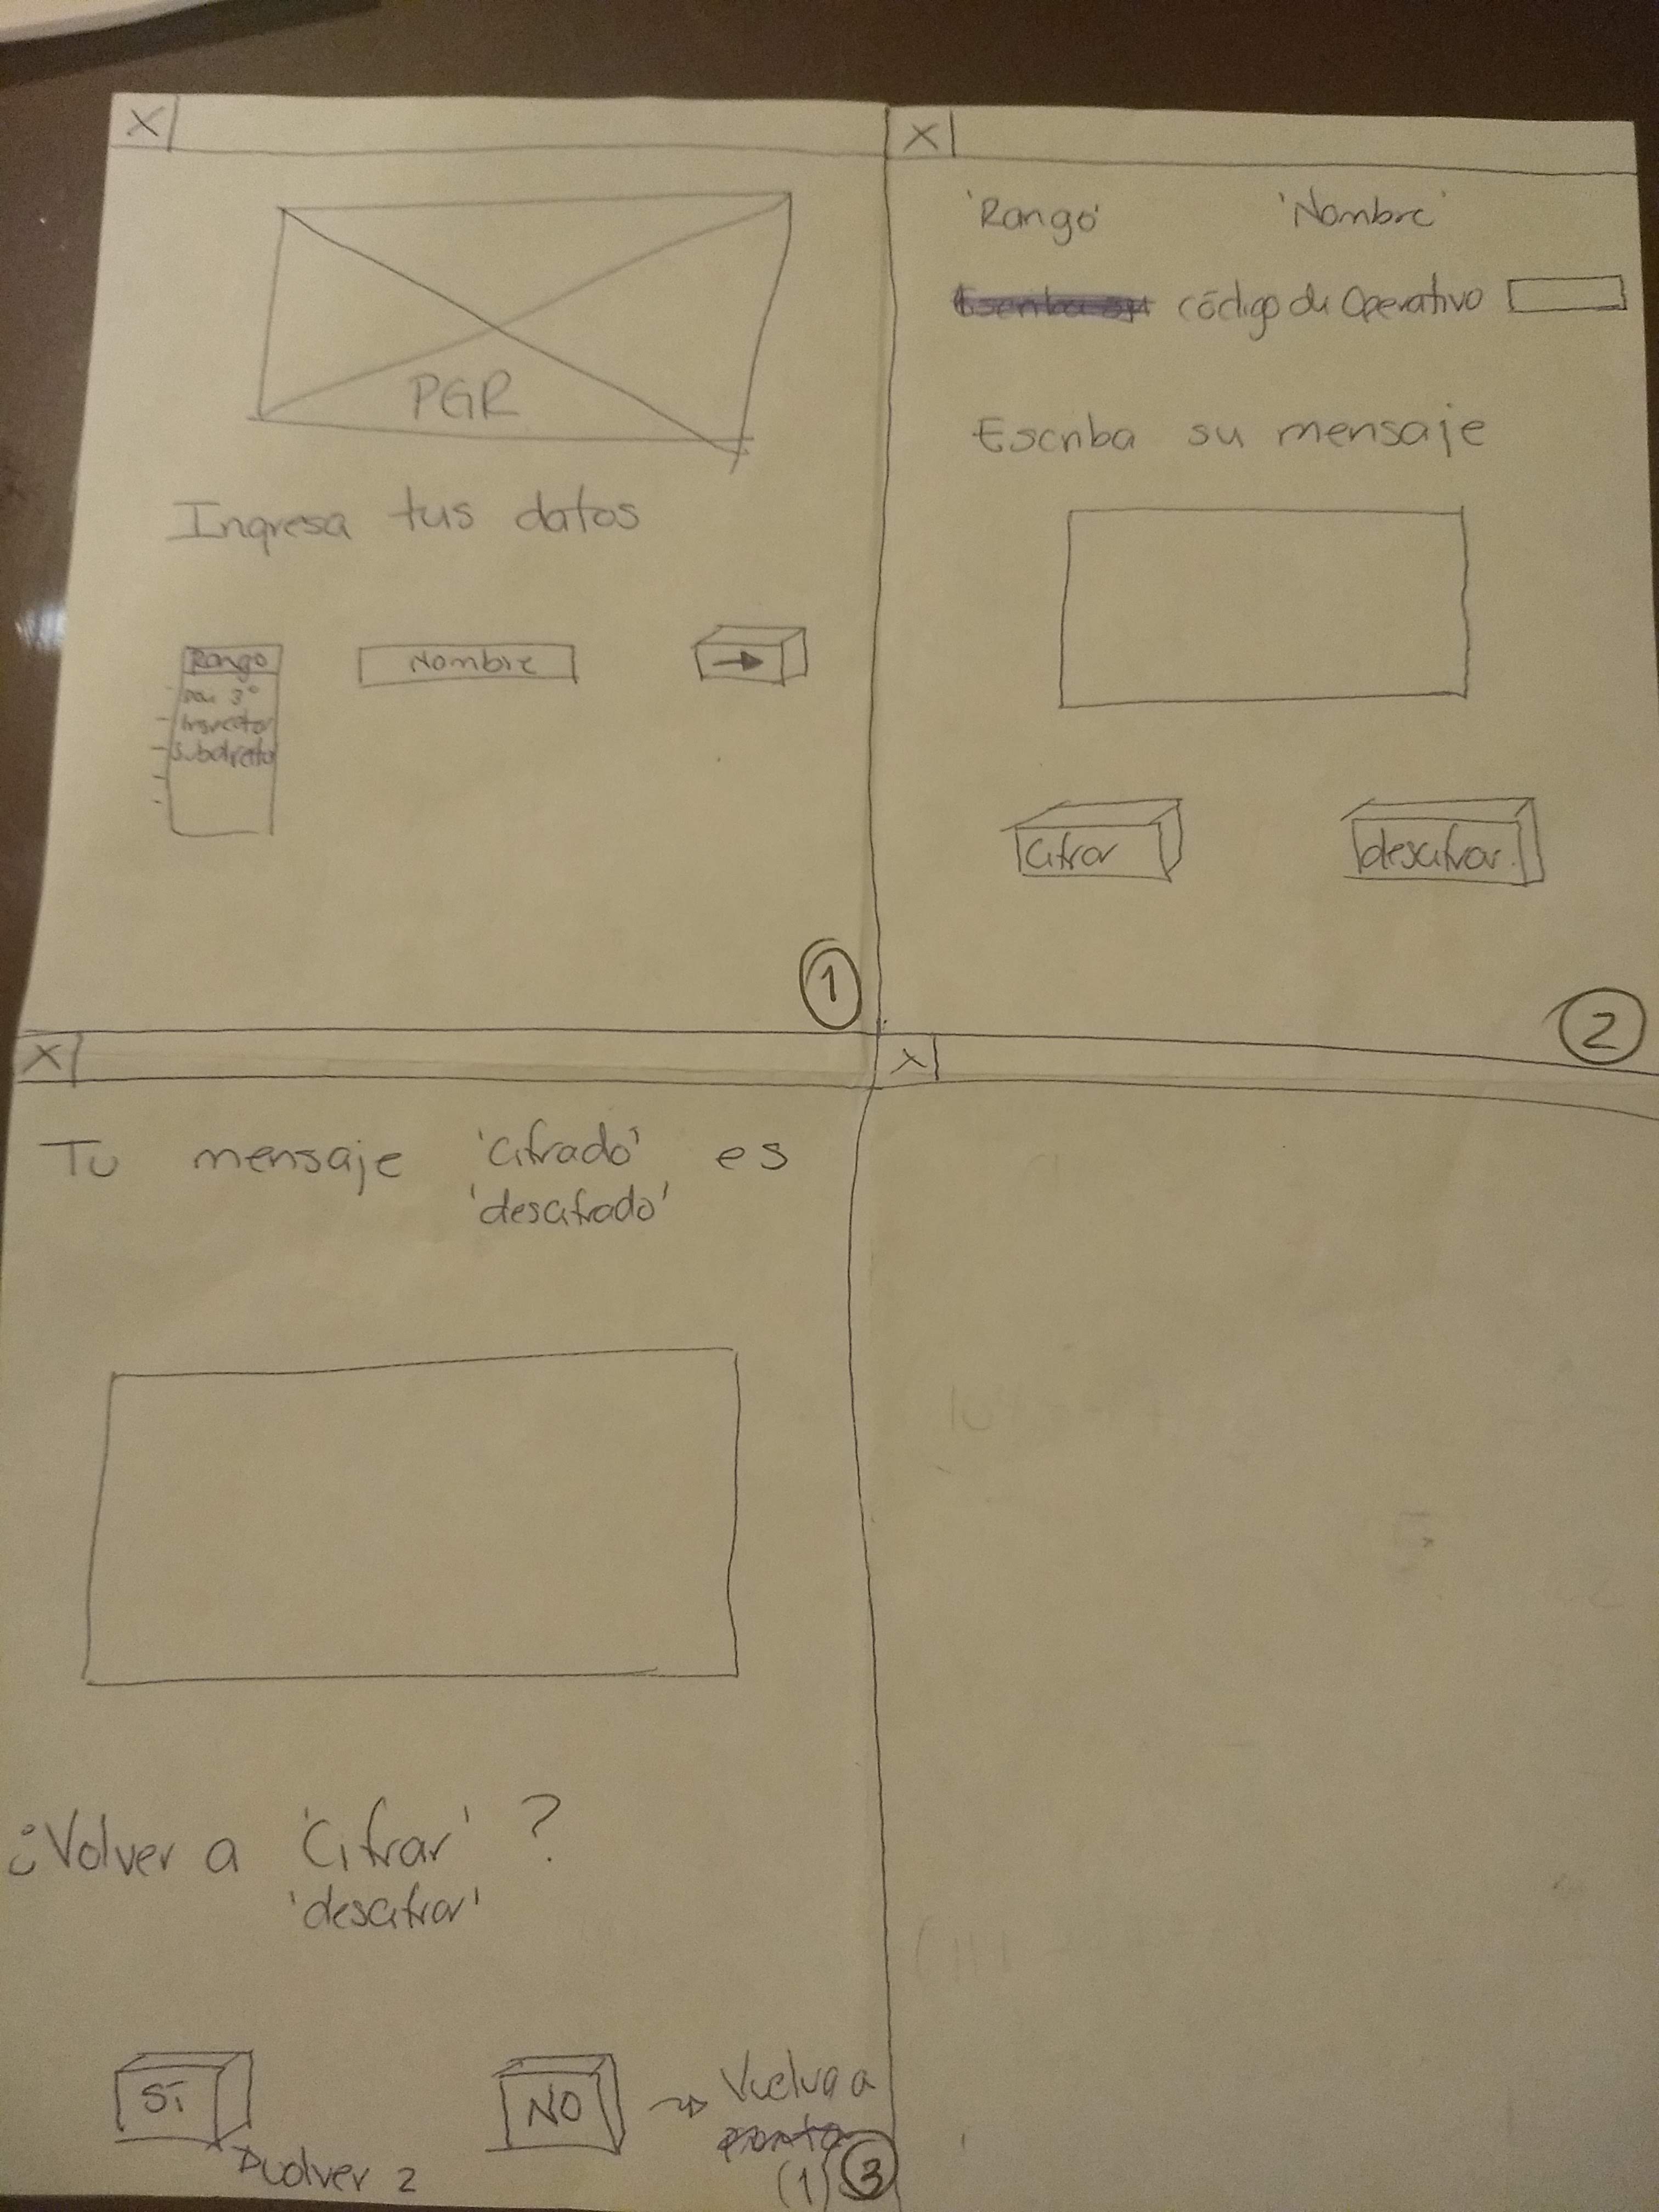 X
PGR
Ingresa tus datos
Rango
3°
Inspector
Nombre
→
1
X
'Rango' 'Nombre'
código de Operativo
Escriba su mensaje
cifrar descifrar
2
X
Tu mensaje 'cifrado' es
'descifrado'
¿Volver a 'Cifrar' ?
'descifrar'
SI
volver 2
NO → Vuelva a
(1)
3
X